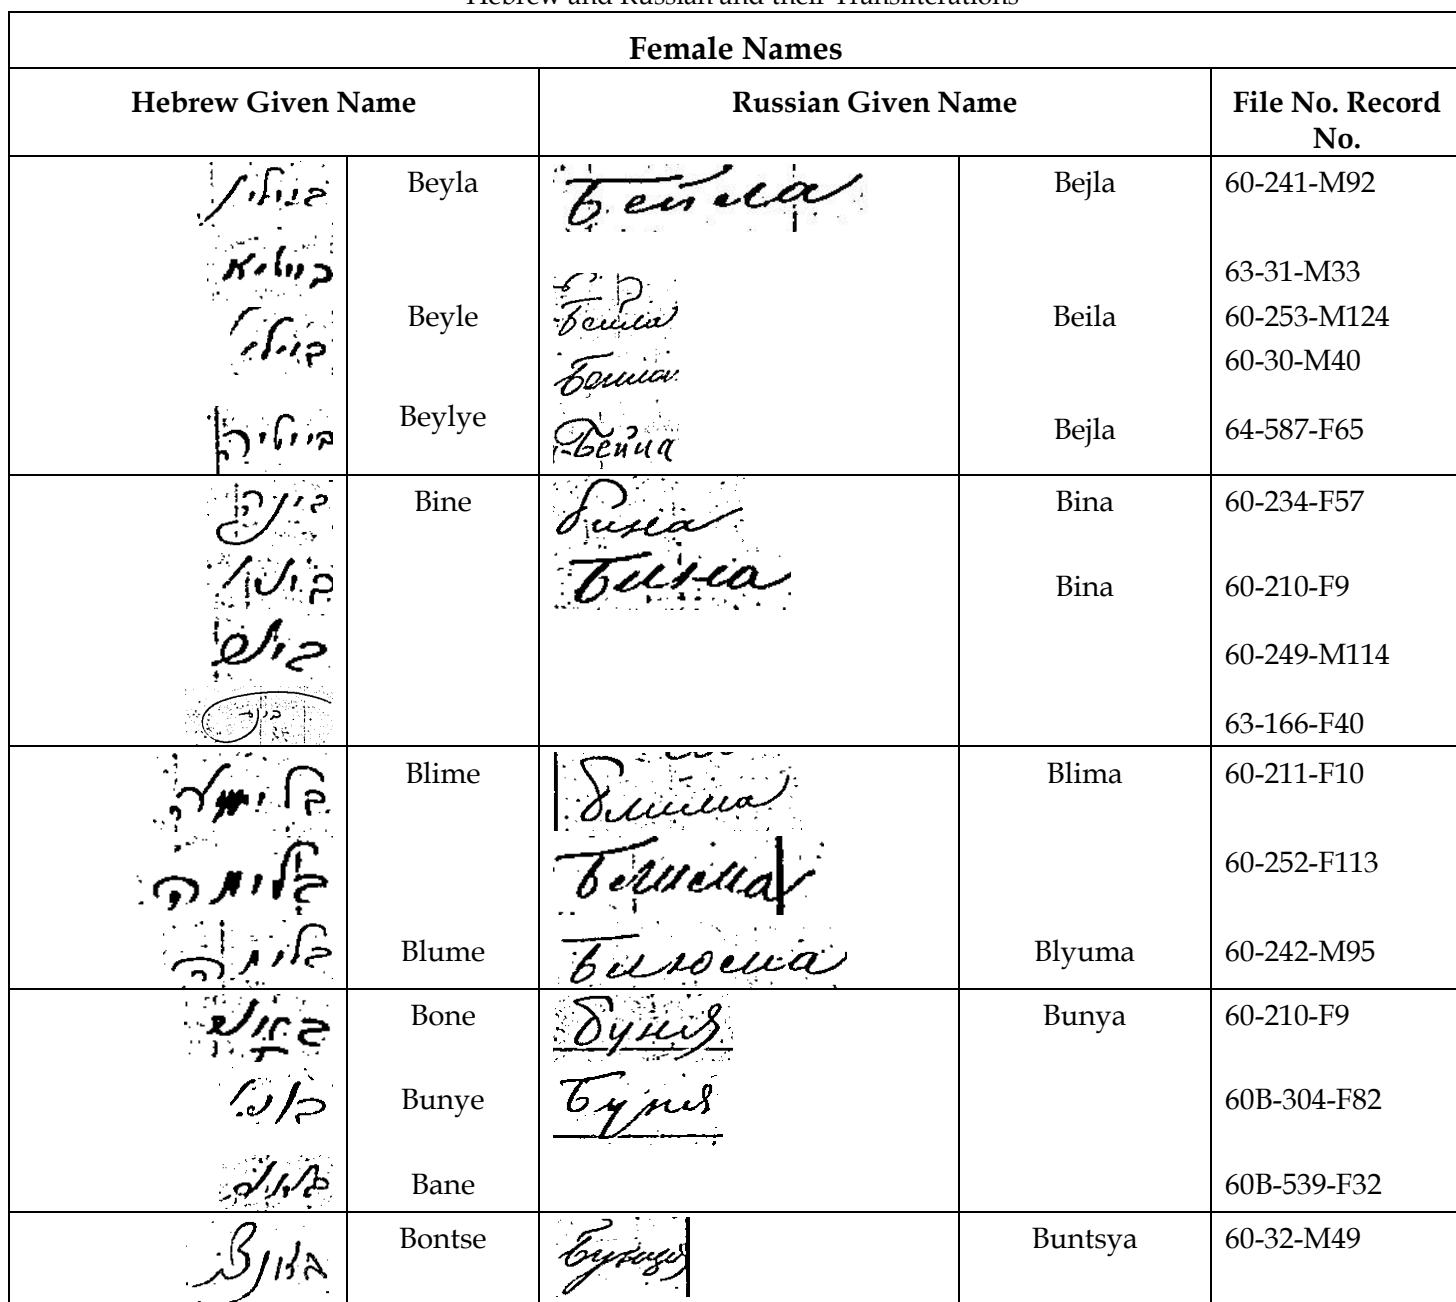 Hebrew and Russian and their Transliterations
Female Names
Hebrew Given Name Russian Given Name File No. Record No.
Beyla Бейла Bejla 60-241-M92
63-31-M33
Beyle Бейла Beila 60-253-M124
60-30-M40
בייליה Beylye Бейла Bejla 64-587-F65
בינה Bine Бина Bina 60-234-F57
Бина Bina 60-210-F9
60-249-M114
63-166-F40
Blime Блима Blima 60-211-F10
בלימה 60-252-F113
בלומה Blume Блюма Blyuma 60-242-M95
Bone Буня Bunya 60-210-F9
Bunye Буня 60B-304-F82
Bane 60B-539-F32
Bontse Бунця Buntsya 60-32-M49